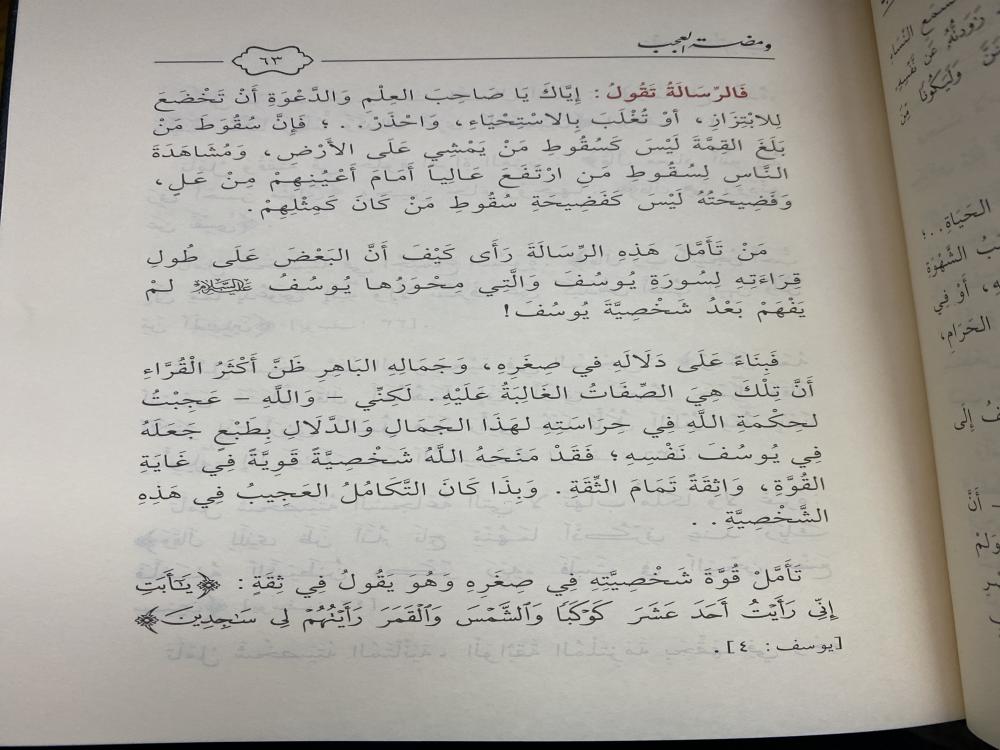 ومضة العجب
٦٣
فَالرِّسَالَةُ تَقُولُ: إِيَّاكَ يَا صَاحِبَ العِلْمِ وَالدَّعْوَةِ أَنْ تَخْضَعَ
لِلابْتِزَازِ، أَوْ تُغْلَبَ بِالاسْتِحْيَاءِ، وَاحْذَرْ..؛ فَإِنَّ سُقُوطَ مَنْ
بَلَغَ القِمَّةَ لَيْسَ كَسُقُوطِ مَنْ يَمْشِي عَلَى الأَرْضِ، وَمُشَاهَدَةَ
النَّاسِ لِسُقُوطِ مَنِ ارْتَفَعَ عَالِياً أَمَامَ أَعْيُنِهِمْ مِنْ عَلٍ،
وَفَضِيحَتُهُ لَيْسَ كَفَضِيحَةِ سُقُوطِ مَنْ كَانَ كَمِثْلِهِمْ.
مَنْ تَأَمَّلَ هَذِهِ الرِّسَالَةَ رَأَى كَيْفَ أَنَّ البَعْضَ عَلَى طُولِ
قِرَاءَتِهِ لِسُورَةِ يُوسُفَ وَالَّتِي مِحْوَرُها يُوسُفُ عَلَيْهِ السَّلَامُ لَمْ
يَفْهَمْ بَعْدُ شَخْصِيَّةَ يُوسُفَ!
فَبِنَاءً عَلَى دَلَالِهِ في صغَرِهِ، وَجَمَالِهِ البَاهِرِ ظَنَّ أَكْثَرُ القُرَّاءِ
أَنَّ تِلْكَ هِيَ الصِّفَاتُ الغَالِبَةُ عَلَيْهِ. لَكِنِّي - وَاللَّهِ - عَجِبْتُ
لحِكْمَةِ اللَّهِ فِي حِرَاسَتِهِ لهَذَا الجَمَالِ وَالدَّلَالِ بِطَبْعٍ جَعَلَهُ
فِي يُوسُفَ نَفْسِهِ؛ فَقَدْ مَنَحَهُ اللَّهُ شَخْصِيَّةً قَوِيَّةً فِي غَايَةِ
القُوَّةِ، وَاثِقَةً تَمَامَ الثِّقَةِ. وَبِذَا كَانَ التَّكَامُلُ العَجِيبُ فِي هَذِهِ
الشَّخْصِيَّةِ..
تَأَمَّلْ قُوَّةَ شَخْصِيَّتِهِ فِي صِغَرِهِ وَهُوَ يَقُولُ فِي ثِقَةٍ: ﴿يَٰٓأَبَتِ
إِنِّي رَأَيْتُ أَحَدَ عَشَرَ كَوْكَبًا وَٱلشَّمْسَ وَٱلْقَمَرَ رَأَيْتُهُمْ لِي سَٰجِدِينَ﴾
[يوسف: ٤].
النِّسَاءِ
وَلَيَكُونًا مِّنَ
الحَيَاةِ..؛
الشَّهْوَةَ
أَوْ فِي
الحَرَامِ،
إِلَى
أَنَّ